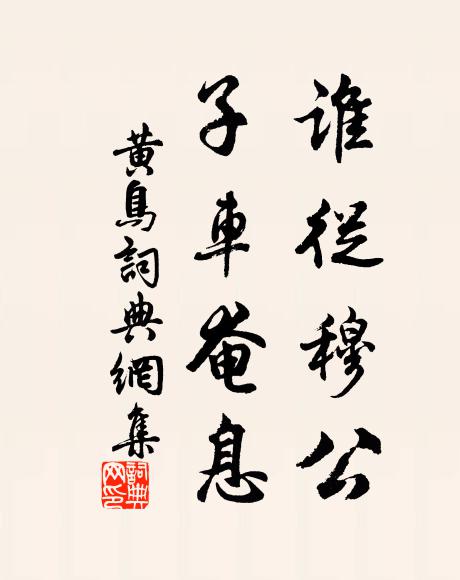 誰從穆公
子車奄息
黃鳥詞典網集
詞典
网印